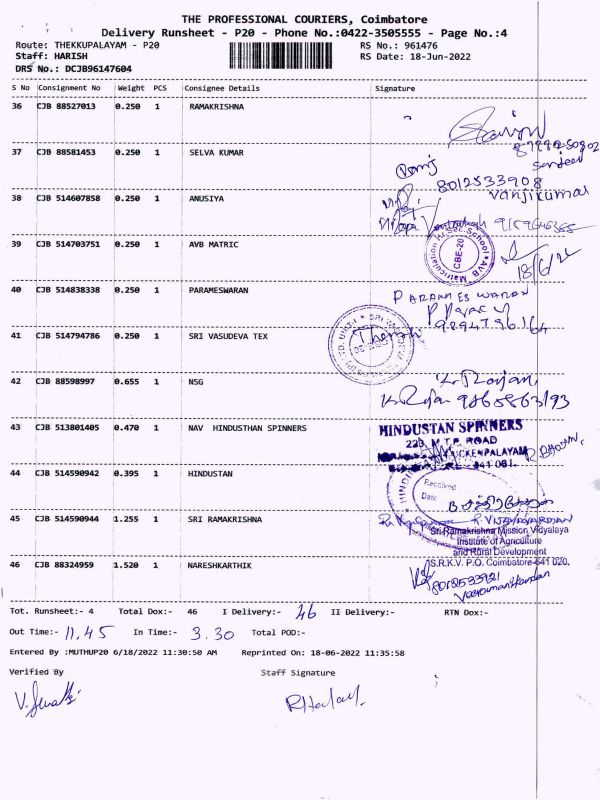 THE PROFESSIONAL COURIERS, Coimbatore
Delivery Runsheet - P20 - Phone No.:0422-3505555 - Page No.:4
Route: THEKKUPALAYAM - P20 RS No.: 961476
Staff: HARISH RS Date: 18-Jun-2022
DRS No.: DCJB96147604
S No Consignment No Weight PCS Consignee Details Signature
36 CJB 88527013 0.250 1 RAMAKRISHNA
37 CJB 88581453 0.250 1 SELVA KUMAR
8012533908
Vanjikumar
38 CJB 514607858 0.250 1 ANUSIYA
39 CJB 514703751 0.250 1 AVB MATRIC
AVB Matriculation Hr. Sec. School
CBE-20
18/6/22
40 CJB 514838338 0.250 1 PARAMESWARAN
PARAMESWARAN
9894796164
41 CJB 514794786 0.250 1 SRI VASUDEVA TEX
42 CJB 88598997 0.655 1 NSG
K. Rajan
43 CJB 513801405 0.470 1 NAV HINDUSTHAN SPINNERS
HINDUSTAN SPINNERS
220, M.T.P. ROAD
44 CJB 514590942 0.395 1 HINDUSTAN
Received
Date
45 CJB 514590944 1.255 1 SRI RAMAKRISHNA
Sri Ramakrishna Mission Vidyalaya
Institute of Agriculture
and Rural Development
S.R.K.V. P.O. Coimbatore-641 020.
46 CJB 88324959 1.520 1 NARESHKARTHIK
Tot. Runsheet:- 4 Total Dox:- 46 I Delivery:- 46 II Delivery:- RTN Dox:-
Out Time:- 11.45 In Time:- 3.30 Total POD:-
Entered By :MUTHUP20 6/18/2022 11:30:50 AM Reprinted On: 18-06-2022 11:35:58
Verified By Staff Signature